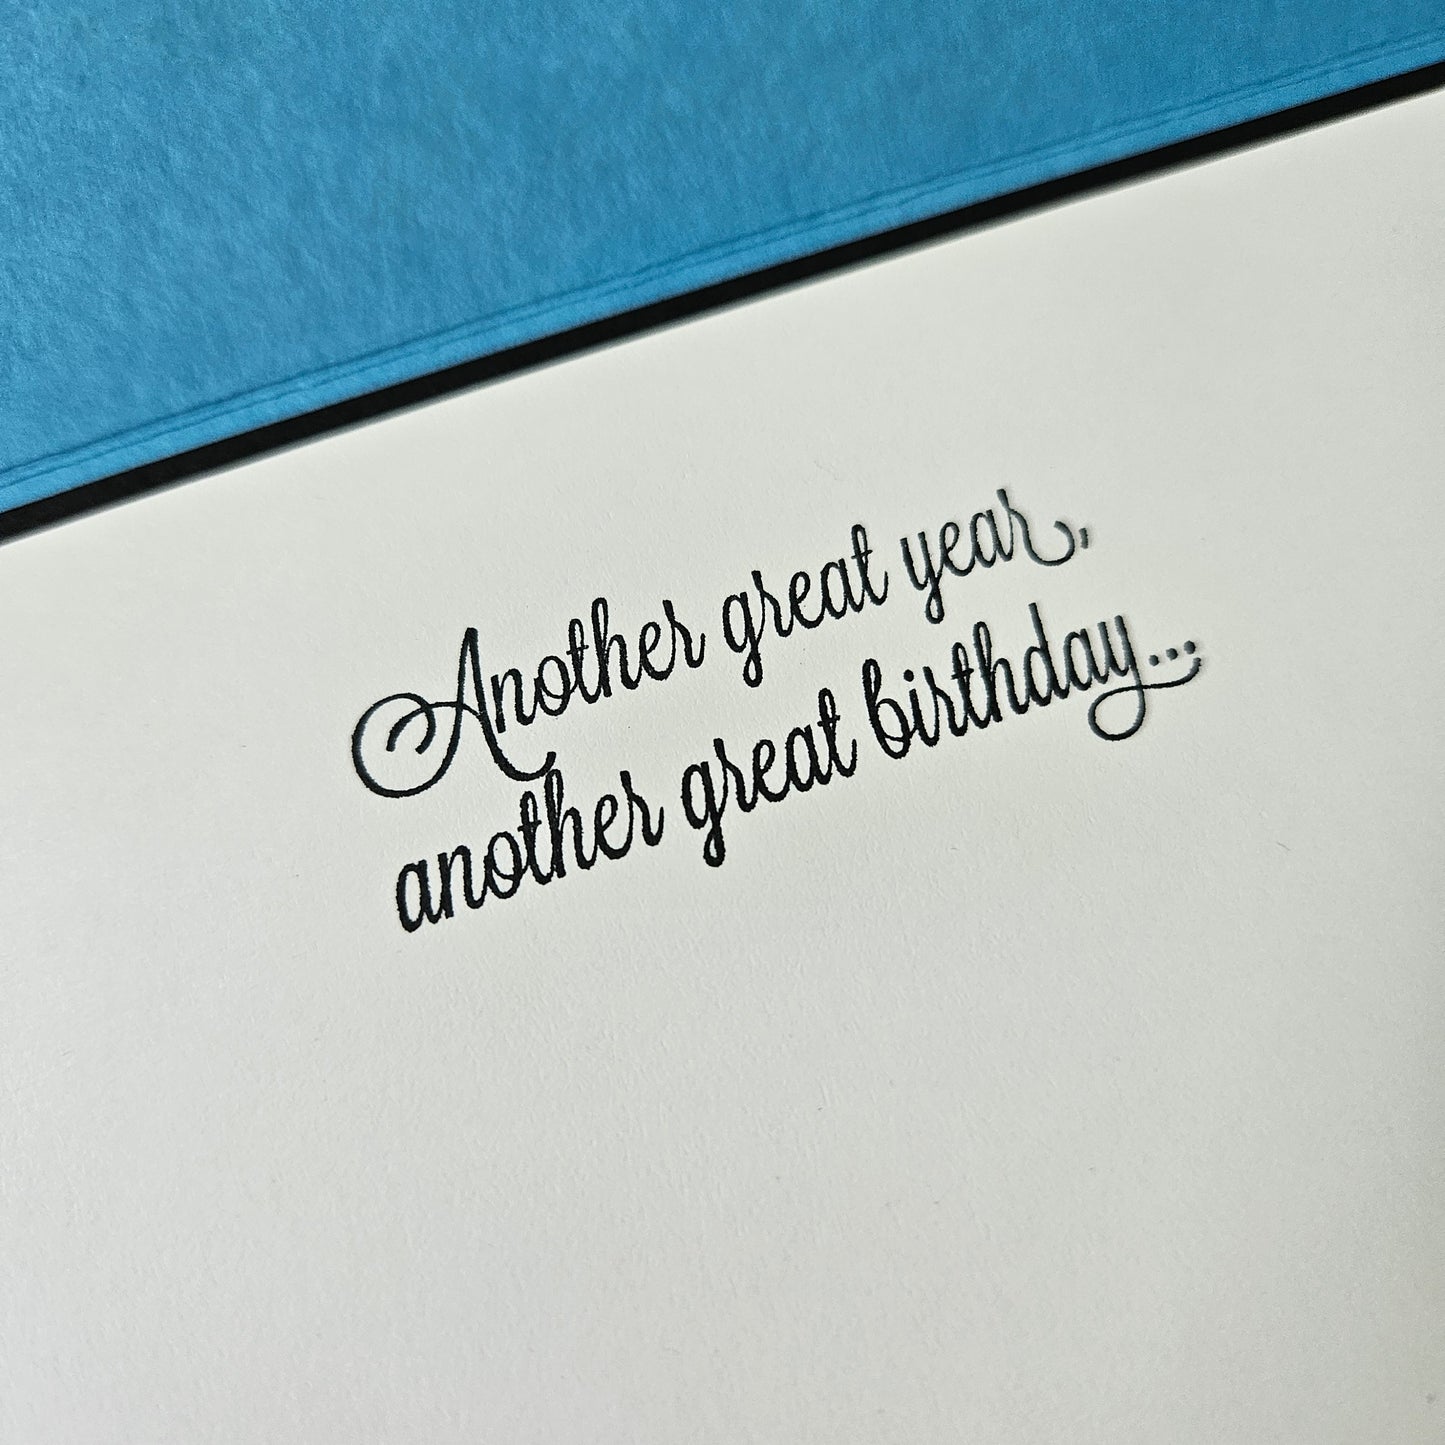 Another great year,
another great birthday...